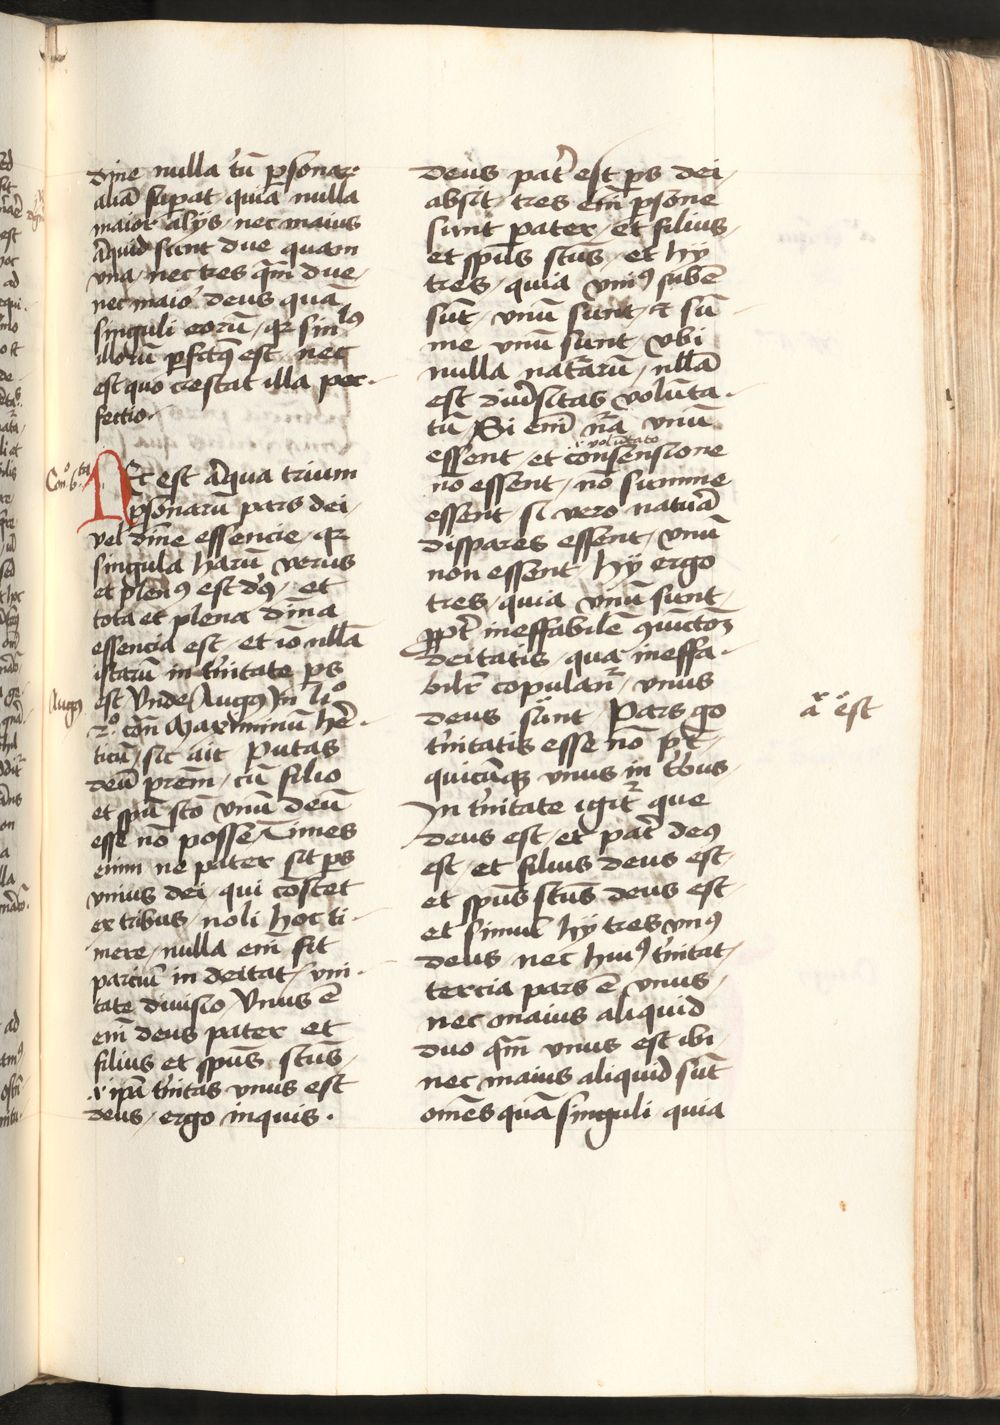 dine nulla tn̄ psonar
aliā supat quia nulla
maior alijs / nec maius
aliquid sunt due quam
vna / nec tres qm̄ due /
nec maior deus quā
singuli eorū / qr singlus
illorū pfectus est nec
est quo crescat illa per
fectio ·
Con. 6ta
Nec est aliqua trium
psonarū pars dei /
vel diuine essencie / qr
singula harū verus
et plenus est ds / et
tota et plena diuīa
essencia est / et io nllā
istarū in trinitate ps
Augus
est Vnde Augus in lio
2o con Maximinū here
ticū / sic ait Putas
deū prem / cū filio
et spū sctō vnū deū
esse nō posse / Times
enim ne pater sit ps
vnius dei / qui constet
ex tribus / noli hoc ti
mere / nulla eni fit
parciū in deitat / vni
tate diuisio / Vnus ē
eni deus pater et
filius et spus stūs /
i ipā trinitas vnus est
deus / ergo inquis ·
deus pater est ps dei /
absit / tres eni psone
sunt pater / et filius
et spūs stūs / et hij
tres / quia vnius suben
sūt / vnū sunt / et sū
me vnū sunt / vbi
nulla naturarū / nllā
est diuersitas volunta
tū / Si eni nrā vnū
i voluntate
essent / et consensione
nō essent / nō summe
essent / si vero naturā
dispares essent / vnū
non essent / hij ergo
tres / quia vnū sunt /
ppter ineffabilē coniunctionē
deitatis / qua ineffa
bilit copulantur / vnus
deus sunt / Pars go
a est
trinitatis esse nō pt /
quicūq vnus in tribus /
In trinitate igitur que
deus est / et pater deus
est / et filius deus est /
et spūs stūs deus est
et simul hij tres vnus
deus nec huius trinitat /
tercia pars ē vnus /
nec maius aliquid
duo qm̄ vnus est ibi ·
nec maius aliquid sūt
omēs quā singuli / quia